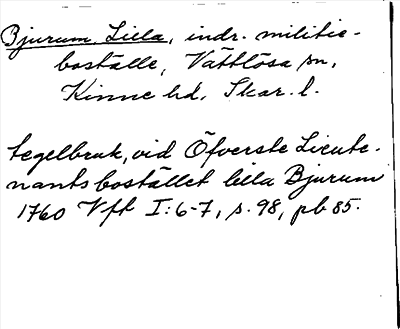 Bjurum, Lilla, indr. militie-
boställe, Vättlösa sn,
Kinne hd, Skar. l.
tegelbruk, vid Öfverste Lieute-
nants bostället lilla Bjurum
1760 Vft I:6-7, s. 98, pb 85.